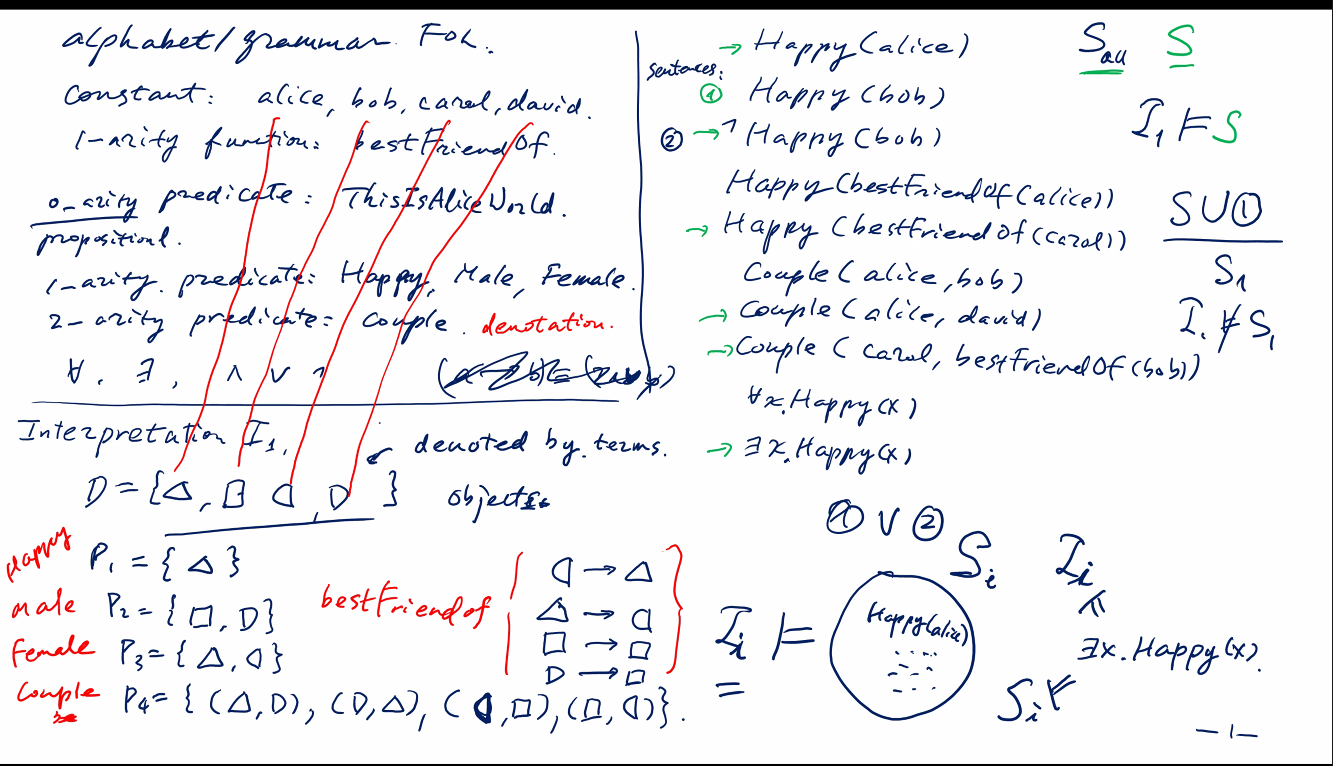 alphabet/grammar FOL.
constant: alice, bob, carol, david.
1-arity function: bestFriendOf.
0-arity predicate: ThisIsAliceWorld.
propositionl.
1-arity. predicate: Happy, Male, Female.
2-arity predicate: Couple. denotation.
∀, ∃, ∧ ∨ ¬
Interpretation I₁,
denoted by terms.
D = {△, □ ◁ D }
objects.
Happy P₁ = { △ }
male P₂ = { □, D }
Female P₃ = { △, ◁ }
Couple P₄ = { (△, D), (D, △), (◁, □), (□, ◁) }.
bestFriendof
◁ → △
△ → ◁
□ → □
D → □
sentences:
→ Happy (alice)
① Happy (bob)
② → ¬ Happy (bob)
Happy (bestFriendOf (alice))
→ Happy (bestFriendOf (carol))
Couple (alice, bob)
→ Couple (alice, david)
→ Couple (carol, bestFriendOf (bob))
∀x. Happy (x)
→ ∃x. Happy (x)
S_all S
I₁ ⊨ S
S ∪ ①
S₁
I₁ ⊭ S₁
① ∨ ②
S_i I_i
I_i ⊨
Happy (alice)
=
∃x. Happy (x).
S_i
-1-